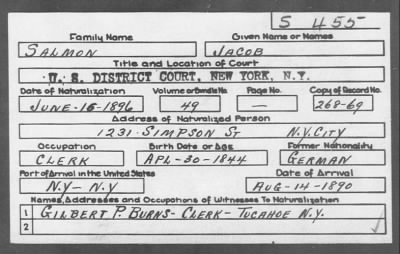 S 455
Family Name Given Name or Names
SALMON JACOB
Title and Location of Court
U. S. DISTRICT COURT, NEW YORK, N.Y.
Date of Naturalization Volume or Bundle No. Page No. Copy of Record No.
JUNE-15-1896 49 — 268-69
Address of Naturalized Person
1231 SIMPSON ST N.Y.CITY
Occupation Birth Date or Age Former Nationality
CLERK APL-30-1844 GERMAN
Port of Arrival in the United States Date of Arrival
N.Y- N.Y AUG-14-1890
Names, Addresses and Occupations of Witnesses To Naturalization
1 GILBERT P. BURNS- CLERK- TUCAHOE N.Y.
2